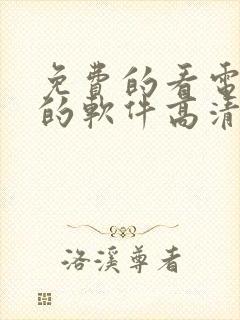 免費的看電
的軟件高清
洛溪尊者